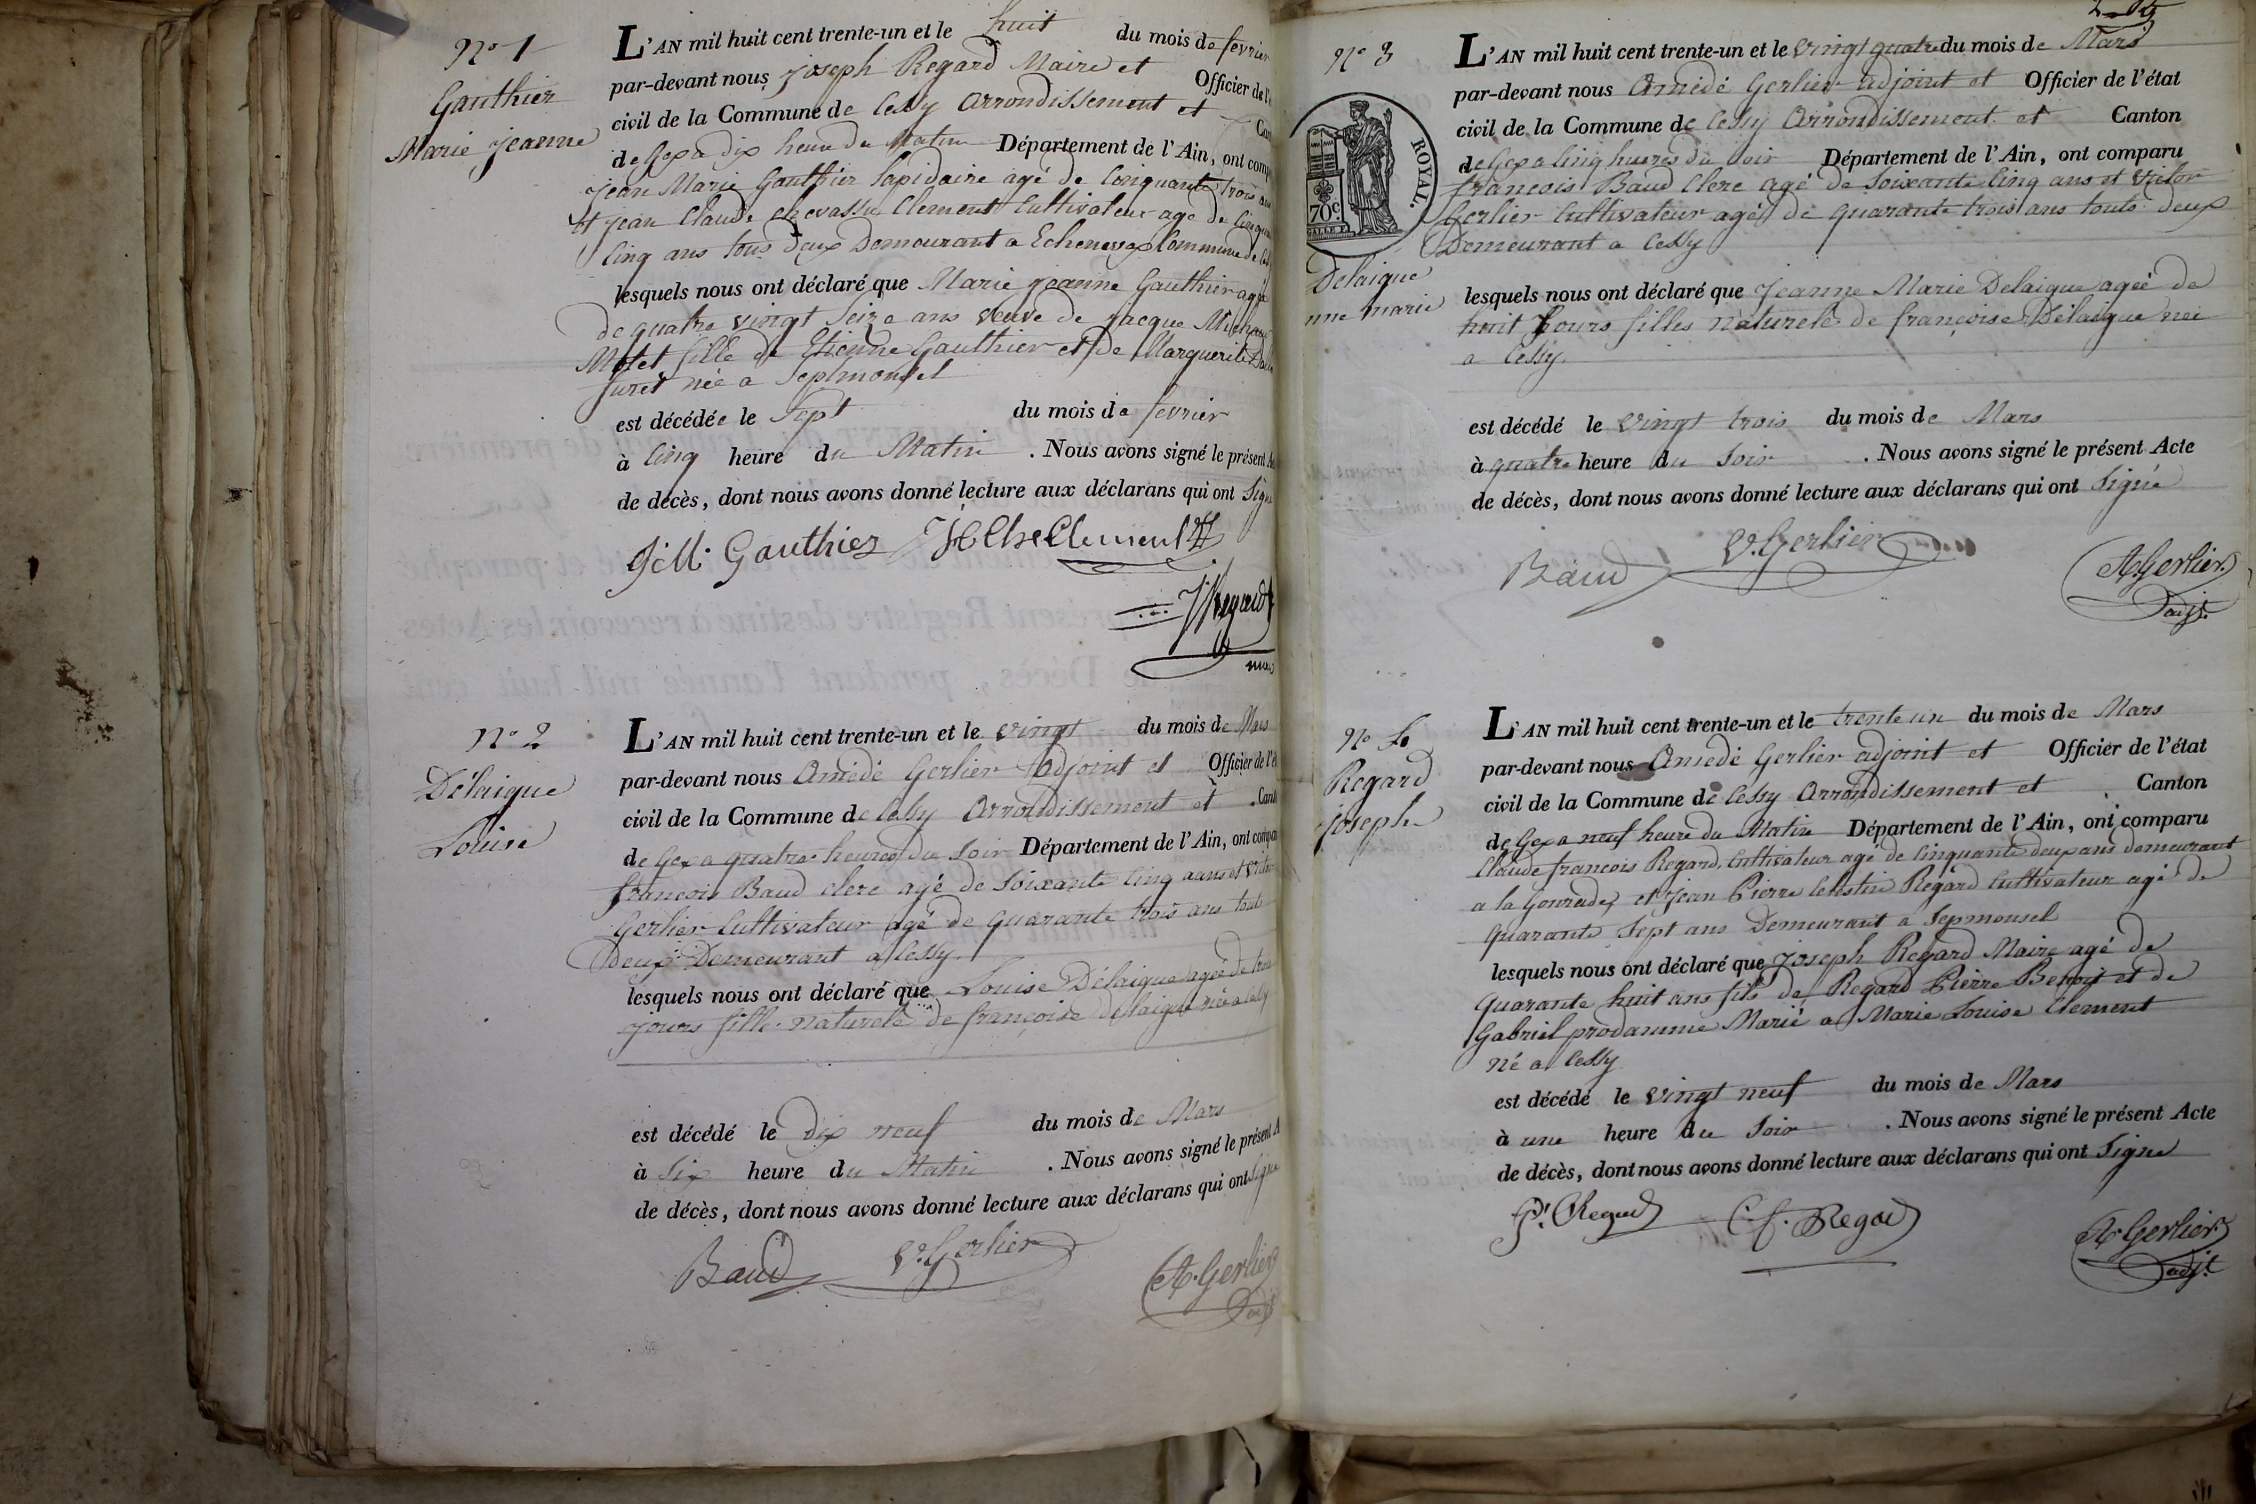 N° 1
Gauthier
Marie Jeanne
L'AN mil huit cent trente-un et le huit du mois de fevrier
par-devant nous Joseph Regard Maire et Officier de l'é
civil de la Commune de Cessy Arrondissement et Can
de Gex a dix heure du Matin Département de l'Ain, ont comp
Jean Marie Gauthier lapidaire agé de Cinquante trois ans
et Jean Claude Chevassu Clement Cultivateur age de Cinqua
Cinq ans tous deux Demourant a Echenevex Commune de
lesquels nous ont déclaré que Marie Jeanne Gauthier agée
de quatre vingt seize ans veuve de Jacque
Motet fille de Etienne Gauthier et de Marguerite
Juret née a Septmonsel
est décédée le Sept du mois de fevrier
à Cinq heure du Matin . Nous avons signé le présent A
de décès, dont nous avons donné lecture aux déclarans qui ont Signé
J:M: Gauthier JCl Che Clement
J Regard
N° 2
Délaigue
Louise
L'AN mil huit cent trente-un et le vingt du mois de Mars
par-devant nous Amédé Gerlier Adjoint et Officier de l'é
civil de la Commune de Cessy Arrondissement et Canto
de Gex a quatre heures du Soir Département de l'Ain, ont compa
françois Baud clerc agé de Soixante Cinq aans et Victor
Gerlier Cultivateur agé de quarante trois ans touts
Deux Demeurant a Cessy
lesquels nous ont déclaré que Louise Délaigue agée de trois
jours fille naturele de françoise delaigue née a Cessy
est décédé le dix neuf du mois de Mars
à Six heure du Matin . Nous avons signé le présent A
de décès, dont nous avons donné lecture aux déclarans qui ont Signé
Baud V. Gerlier A. Gerlier
adjt
N° 3
ROYAL.
70c.
Delaigue
nne marie
L'AN mil huit cent trente-un et le vingt quatre du mois de Mars
par-devant nous Amédé Gerlier adjoint et Officier de l'état
civil de la Commune de Cessy Arrondissement et Canton
de Gex a Cinq hueres du Soir Département de l'Ain, ont comparu
francois Baud Clerc agé de Soixante Cinq ans et Victor
Gerlier Cultivateur agé de quarante trois ans touts deux
Demeurant a Cessy
lesquels nous ont déclaré que Jeanne Marie Delaigue ageé de
huit Jours filles naturele de françoise Délaigue neé
a Cessy
est décédé le vingt trois du mois de Mars
à quatre heure du Soir . Nous avons signé le présent Acte
de décès, dont nous avons donné lecture aux déclarans qui ont Signé
Baud V. Gerlier A. Gerlier
adjt.
N° 4
Regard
joseph
L'AN mil huit cent trente-un et le trente un du mois de Mars
par-devant nous Amedé Gerlier adjoint et Officier de l'état
civil de la Commune de Cessy Arrondissement et Canton
de Gex a neuf heure du Matin Département de l'Ain, ont comparu
Claude francois Regard, Cultivateur agé de Cinquante deux ans demeurant
a la et Jean Pierre Celestin Regard Cultivateur agé de
quarante Sept ans Demeurant a Sepmonsel
lesquels nous ont déclaré que Joseph Regard Maire agé de
quarante huit ans fils de Regard Pierre Benoit et de
Gabriel prodamme Marié a Marie Louise Clement
né a Cessy
est décédé le vingt neuf du mois de Mars
à une heure du Soir . Nous avons signé le présent Acte
de décès, dont nous avons donné lecture aux déclarans qui ont Signé
P. Regard C. f. Regard A. Gerlier
adjt.